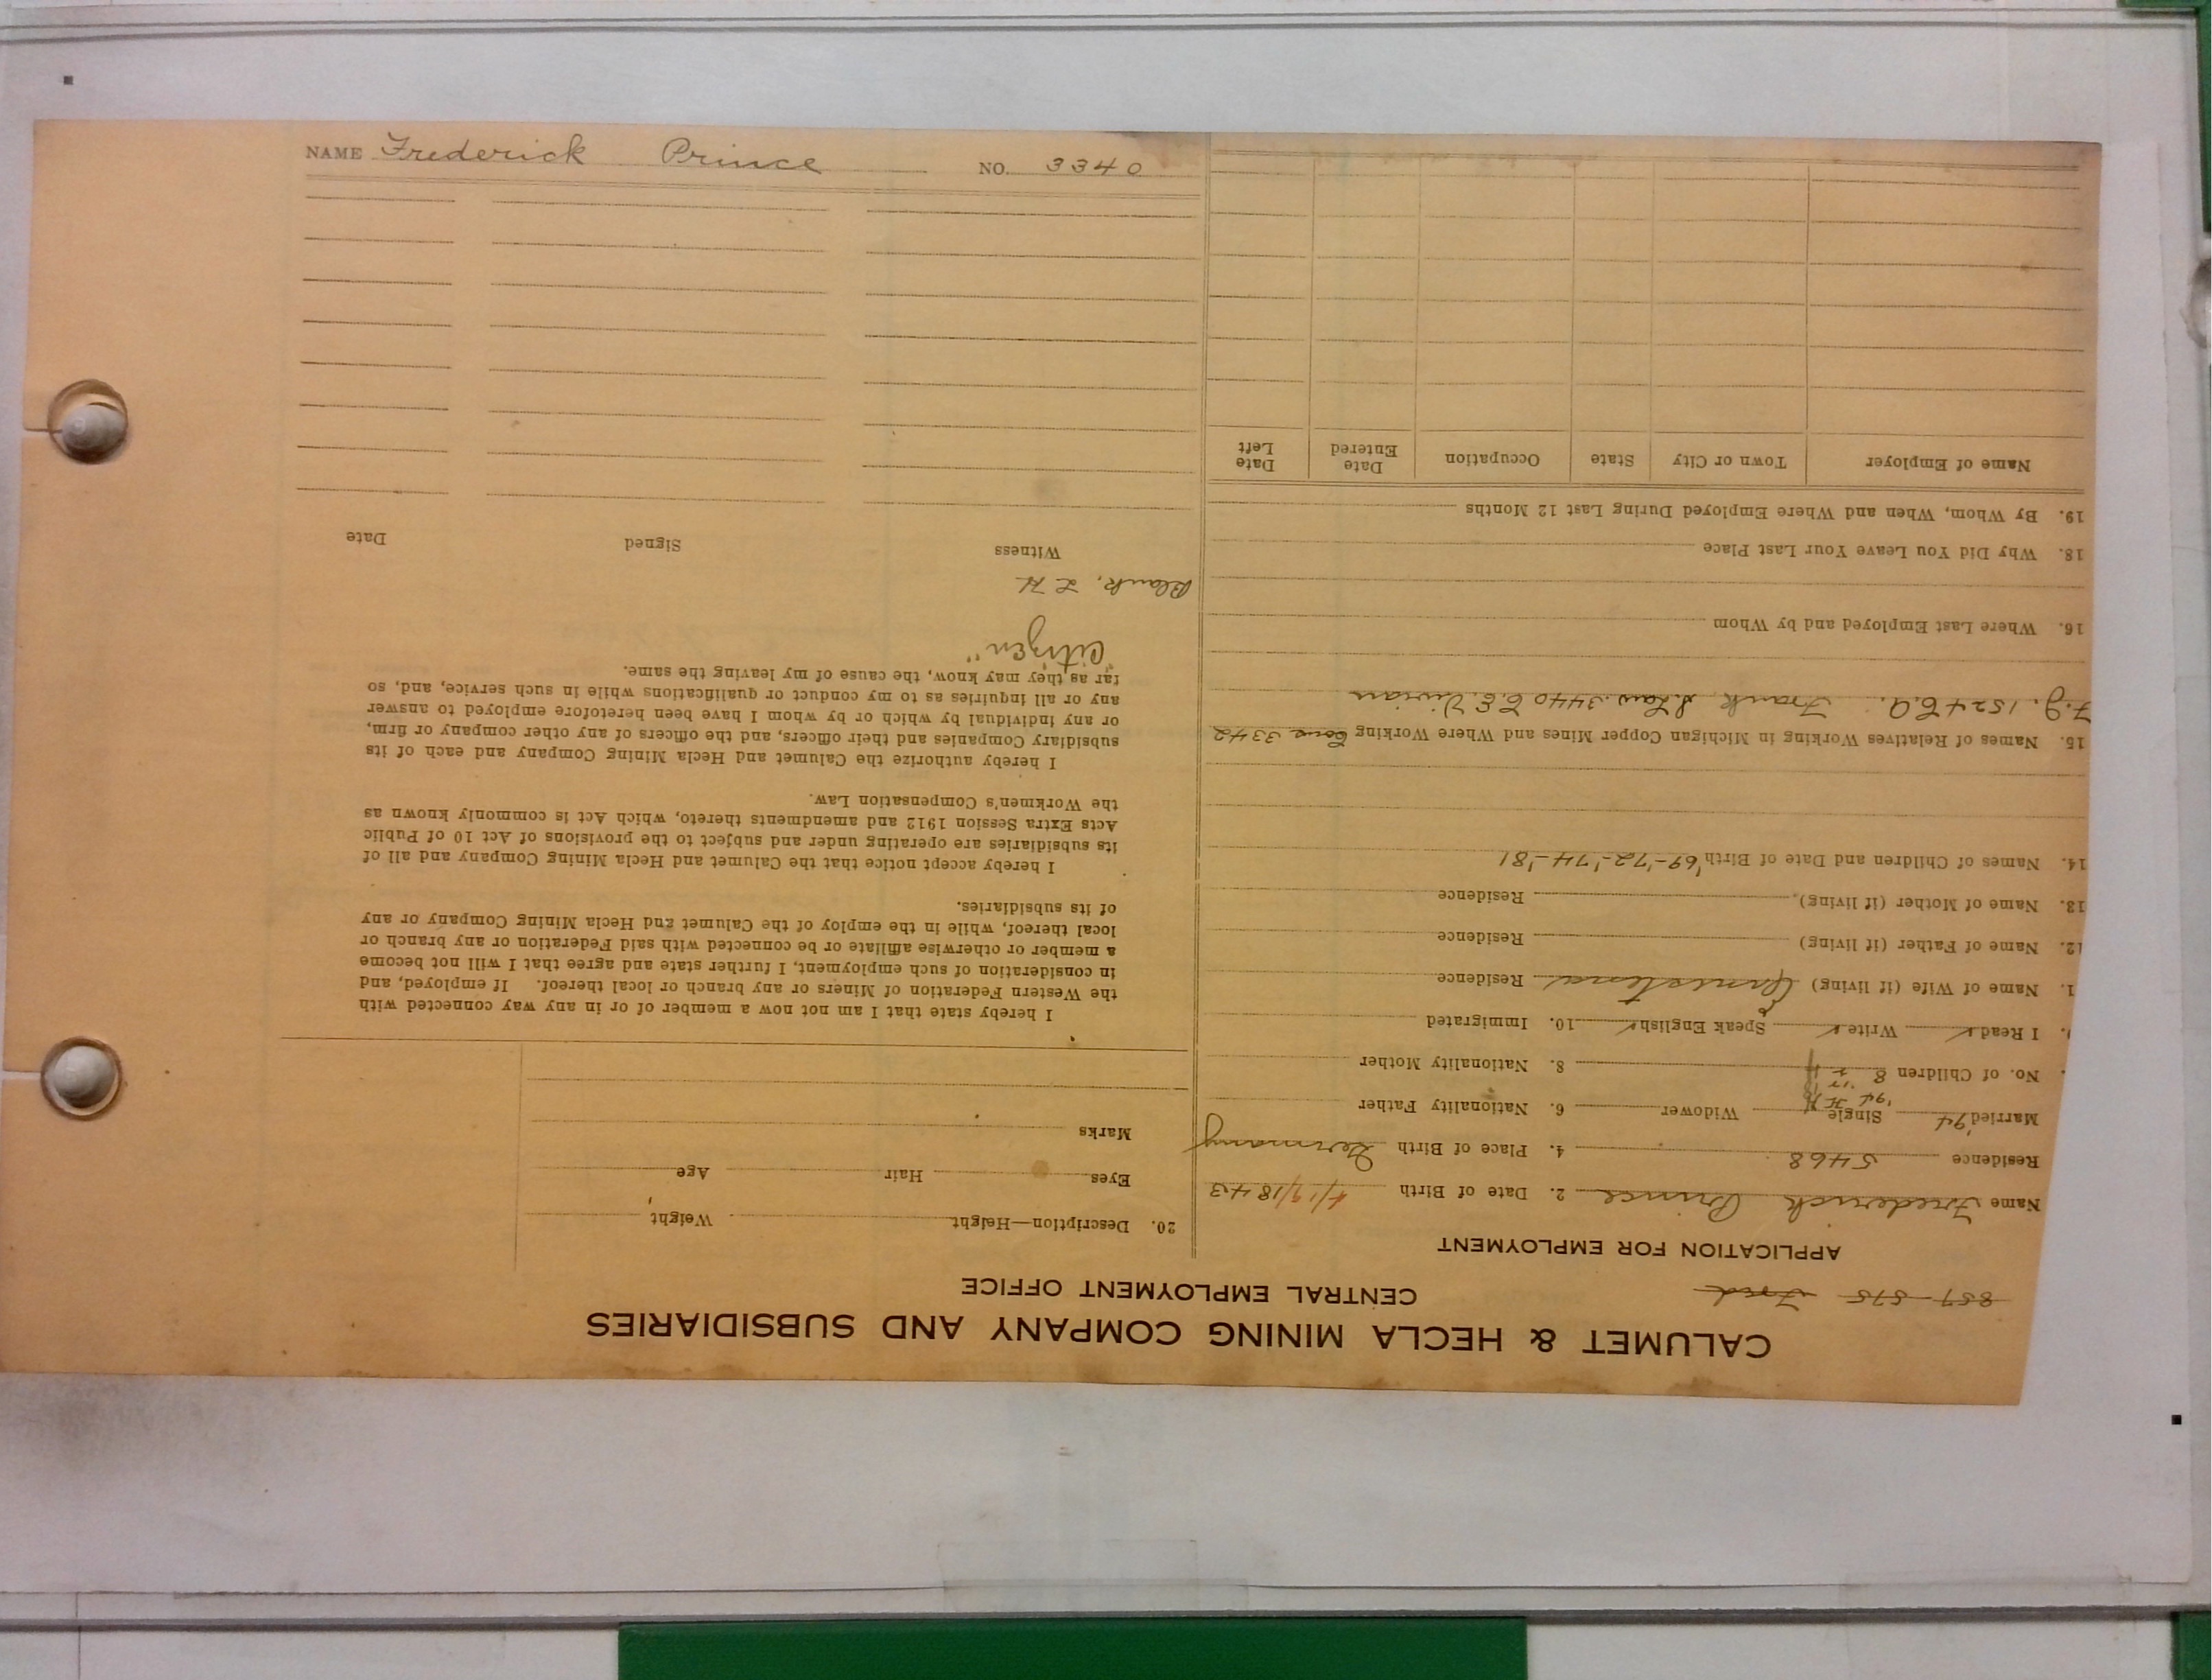 CALUMET & HECLA MINING COMPANY AND SUBSIDIARIES
857-575 Fred
CENTRAL EMPLOYMENT OFFICE
APPLICATION FOR EMPLOYMENT
Name Frederick Prince 2. Date of Birth 4/19/1843
Residence 5468 4. Place of Birth Germany
Married '94 Single Widower 6. Nationality Father
No. of Children 8 8. Nationality Mother
I Read ✓ Write ✓ Speak English ✓ 10. Immigrated
1. Name of Wife (if living) Residence
12. Name of Father (if living) Residence
13. Name of Mother (if living) Residence
14. Names of Children and Date of Birth '69-'72-'74-'81
15. Names of Relatives Working in Michigan Copper Mines and Where Working Sons 3342
F.J. 1524 C.A. Frank S. Law 3440 C.E. Vivian
16. Where Last Employed and by Whom
18. Why Did You Leave Your Last Place
19. By Whom, When and Where Employed During Last 12 Months
Name of Employer Town or City State Occupation Date Entered Date Left
20. Description—Height Weight
Eyes Hair Age
Marks
I hereby state that I am not now a member of or in any way connected with
the Western Federation of Miners or any branch or local thereof. If employed, and
in consideration of such employment, I further state and agree that I will not become
a member or otherwise affiliate or be connected with said Federation or any branch or
local thereof, while in the employ of the Calumet and Hecla Mining Company or any
of its subsidiaries.
I hereby accept notice that the Calumet and Hecla Mining Company and all of
its subsidiaries are operating under and subject to the provisions of Act 10 of Public
Acts Extra Session 1912 and amendments thereto, which Act is commonly known as
the Workmen's Compensation Law.
I hereby authorize the Calumet and Hecla Mining Company and each of its
subsidiary Companies and their officers, and the officers of any other company or firm,
or any individual by which or by whom I have been heretofore employed to answer
any or all inquiries as to my conduct or qualifications while in such service, and, so
far as they may know, the cause of my leaving the same.
Citizen"
Blank, L H
Witness Signed Date
NAME Frederick Prince NO. 3340